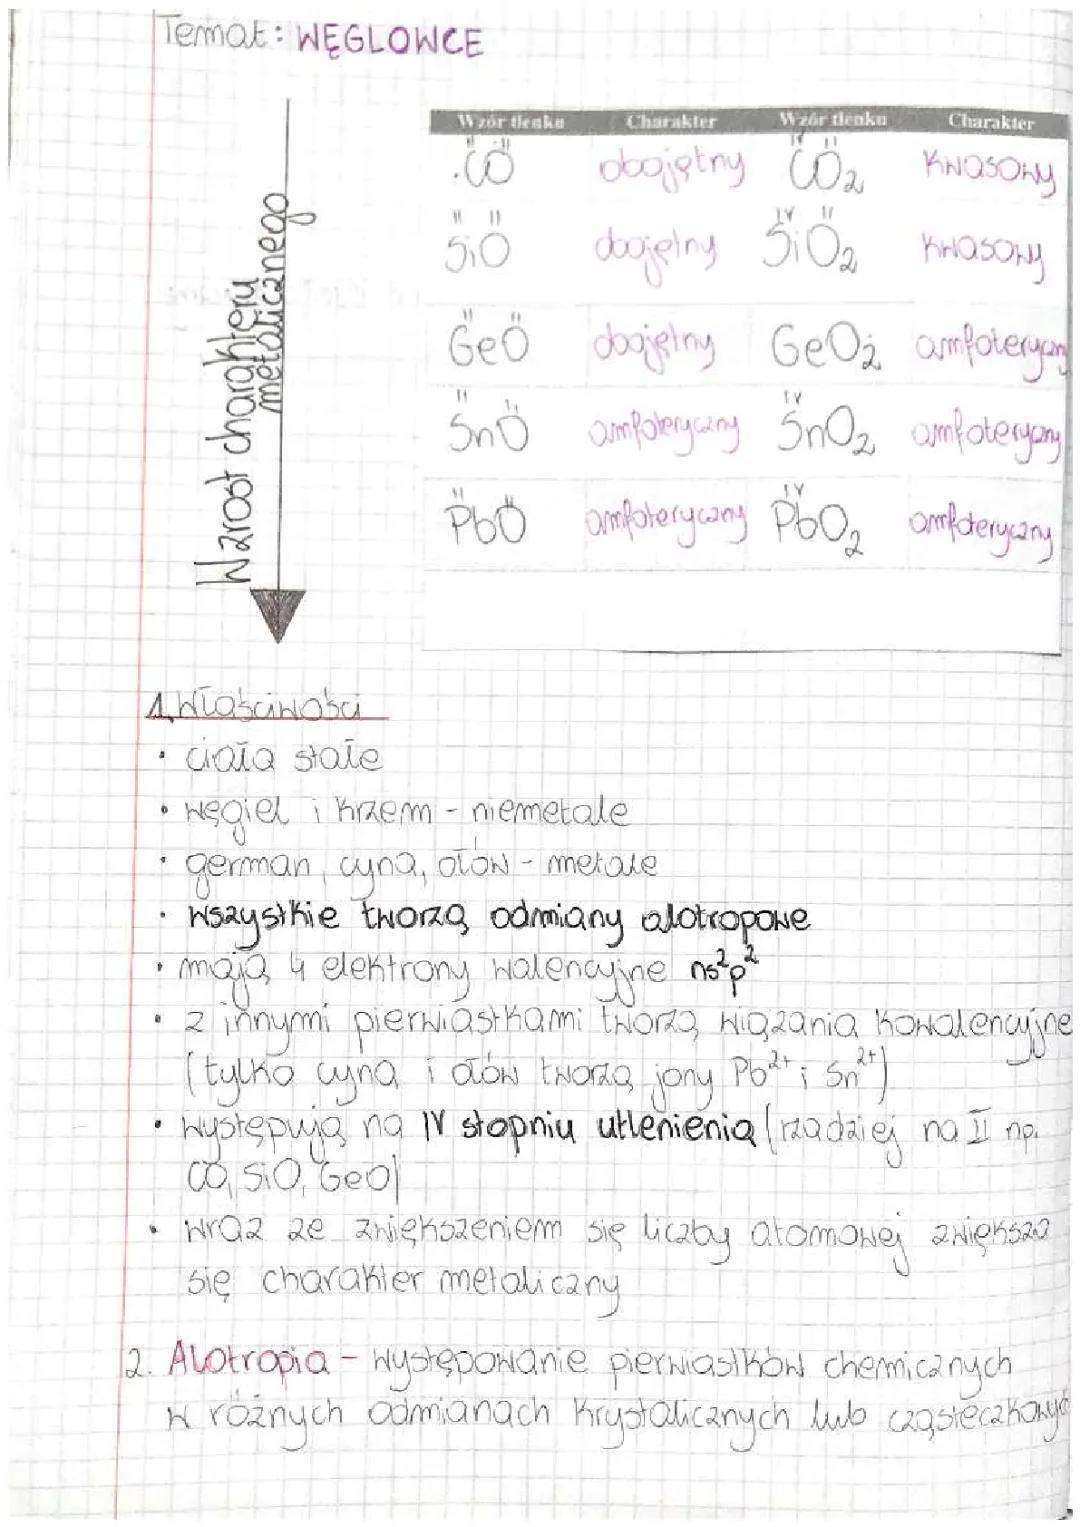 Temat: WĘGLOWCE
Wzrost charakteru
metalicznego
Wzór tlenku Charakter Wzór tlenku Charakter
II II IV II
CO obojętny CO2 kwasowy
II II IV II
SiO obojętny SiO2 kwasowy
II II
GeO obojętny GeO2 amfoteryczny
II II IV
SnO amfoteryczny SnO2 amfoteryczny
II II IV
PbO amfoteryczny PbO2 amfoteryczny
1. Właściwości
• ciała stałe
• węgiel i krzem - niemetale
• german, cyna, ołów - metale
• wszystkie tworzą odmiany alotropowe
• mają 4 elektrony walencyjne ns²p²
• z innymi pierwiastkami tworzą wiązania kowalencyjne
(tylko cyna i ołów tworzą jony Pb²⁺ i Sn²⁺)
• występują na IV stopniu utlenienia (rzadziej na II np.
CO, SiO, GeO)
• wraz ze zwiększeniem się liczby atomowej zwiększa
się charakter metaliczny
2. Alotropia - występowanie pierwiastków chemicznych
w różnych odmianach krystalicznych lub cząsteczkowyc